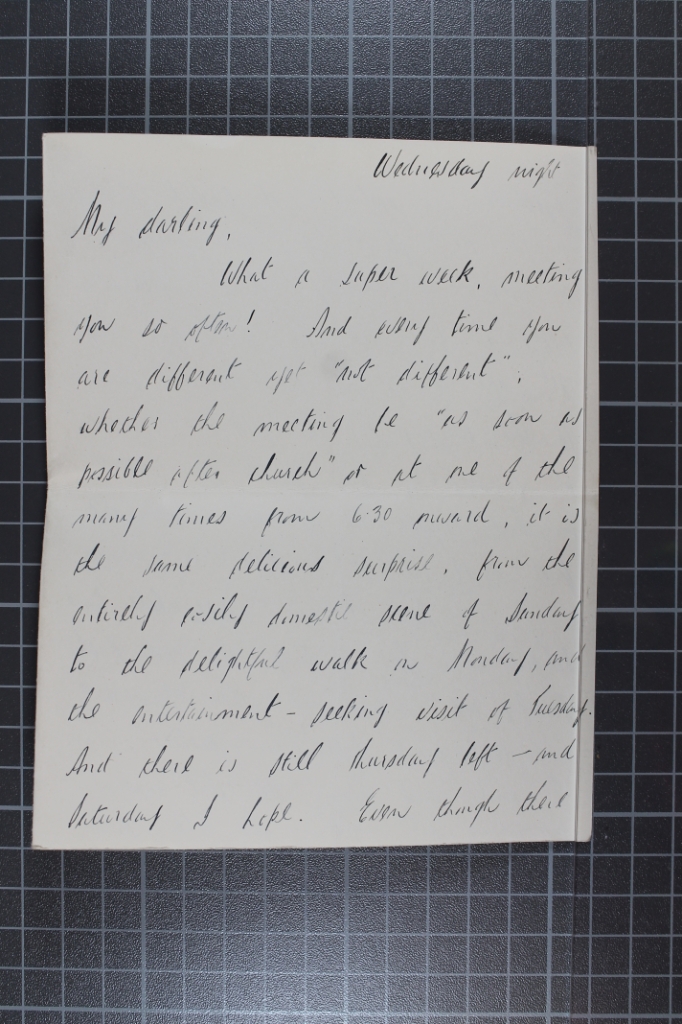 Wednesday night
My darling,
What a super week, meeting
you so often! And every time you
are different yet "not different",
whether the meeting be "as soon as
possible after church" or at one of the
many times from 6.30 onward, it is
the same delicious surprise, from the
entirely cosily domestic scene of Sunday
to the delightful walk on Monday, and
the entertainment-seeking visit of Tuesday.
And there is still Thursday left - and
Saturday I hope. Even though there